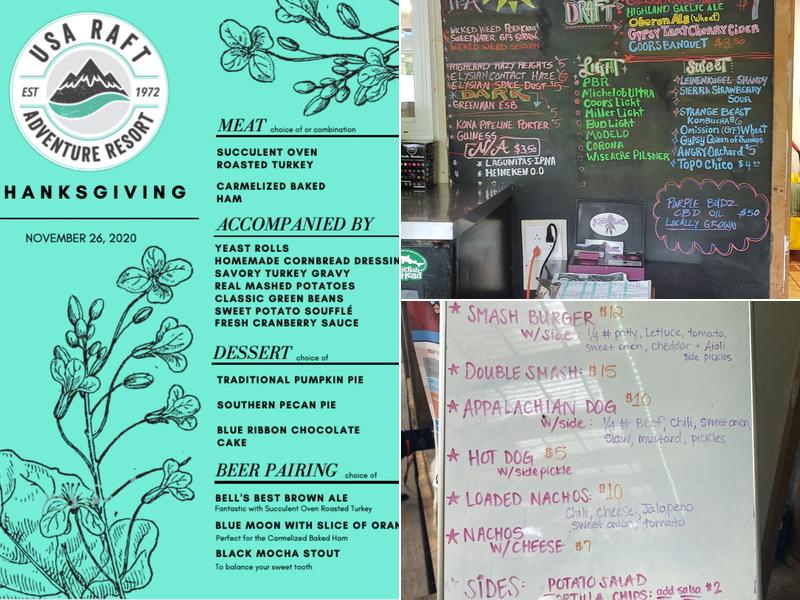 USA RAFT
EST 1972
ADVENTURE RESORT
HANKSGIVING
NOVEMBER 26, 2020
MEAT choice of or combination
SUCCULENT OVEN
ROASTED TURKEY
CARMELIZED BAKED
HAM
ACCOMPANIED BY
YEAST ROLLS
HOMEMADE CORNBREAD DRESSIN
SAVORY TURKEY GRAVY
REAL MASHED POTATOES
CLASSIC GREEN BEANS
SWEET POTATO SOUFFLÉ
FRESH CRANBERRY SAUCE
DESSERT choice of
TRADITIONAL PUMPKIN PIE
SOUTHERN PECAN PIE
BLUE RIBBON CHOCOLATE
CAKE
BEER PAIRING choice of
BELL'S BEST BROWN ALE
Fantastic with Succulent Oven Roasted Turkey
BLUE MOON WITH SLICE OF ORAN
Perfect for the Carmelized Baked Ham
BLACK MOCHA STOUT
To balance your sweet tooth
IPA
WICKED WEED PERNICIOUS
SWEETWATER
WICKED WEED SESSION
HIGHLAND HAZY HEIGHTS 5
ELYSIAN CONTACT HAZE 6
ELYSIAN SPACE DUST 5
DARK
GREENMAN ESB
KONA PIPELINE PORTER 5
GUINESS
N/A $3.50
LAGUNITAS-IPNA
HEINEKEN 0.0
DRAFT
HIGHLAND GAELIC ALE
Oberon Ale (Wheat)
GYPSY TART CHERRY CIDER
COORS BANQUET $3.50
Light
PBR
Michelob ULTRA
Coors Light
Miller Light
Bud Light
MODELO
CORONA
WISEACRE PILSNER
Sweet
LEINENKUGEL SHANDY
SIERRA STRAWBERRY
SOUR
STRANGE BEAST
KOMBUCHA
Omission (GF) Wheat
Gypsy Queen of Swords
ANGRY ORCHARD 5
TOPO CHICO $4.00
PURPLE BUDZ
CBD OIL $50
LOCALLY GROWN
Dogfish
Head
SMASH BURGER $12
W/side 1/4 # patty, lettuce, tomato,
sweet onion, cheddar + Aioli
side pickles
DOUBLE SMASH: $15
APPALACHIAN DOG $10
W/side: 1/4 # Beef, chili, sweet onion
slaw, mustard, pickles
HOT DOG $5
W/side pickle
LOADED NACHOS: $10
Chili, cheese, Jalapeno
sweet onion, tomato
NACHOS
W/CHEESE $7
SIDES: POTATO SALAD
TORTILLA CHIPS: add salsa $2